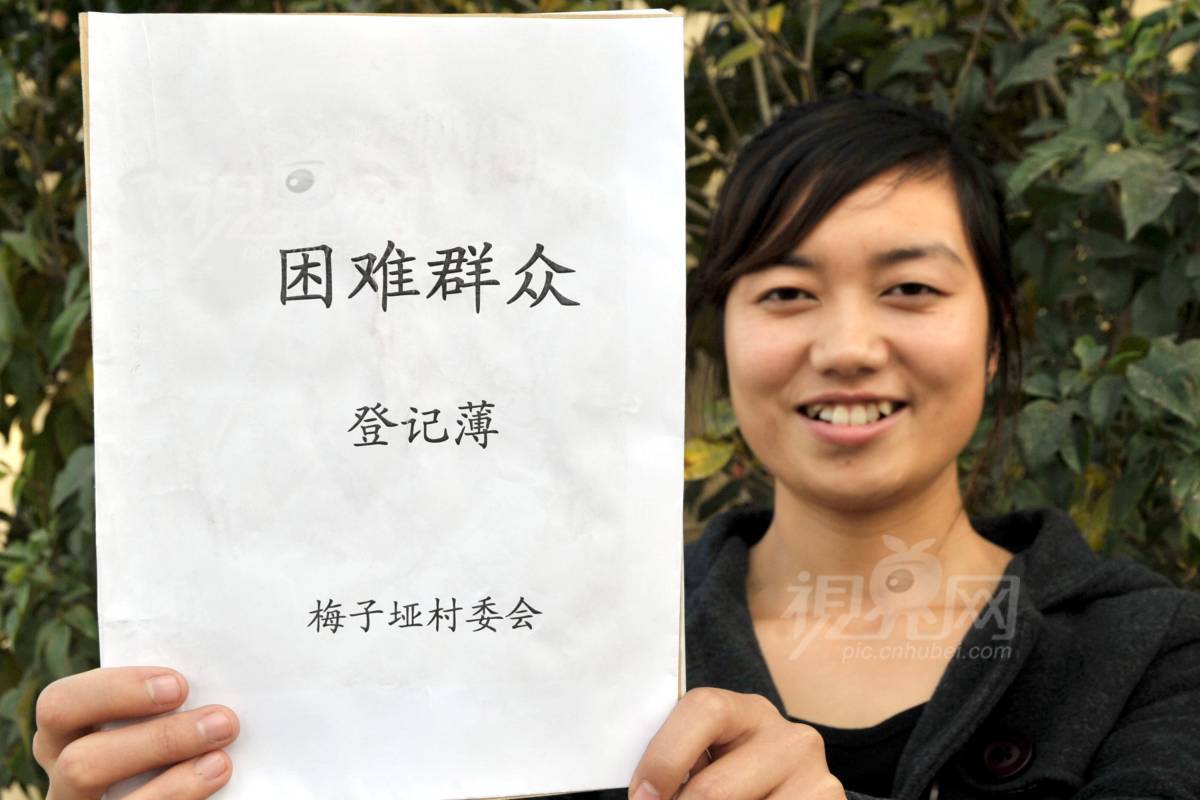 困难群众
登记薄
梅子垭村委会
視界网
pic.cnhubei.com